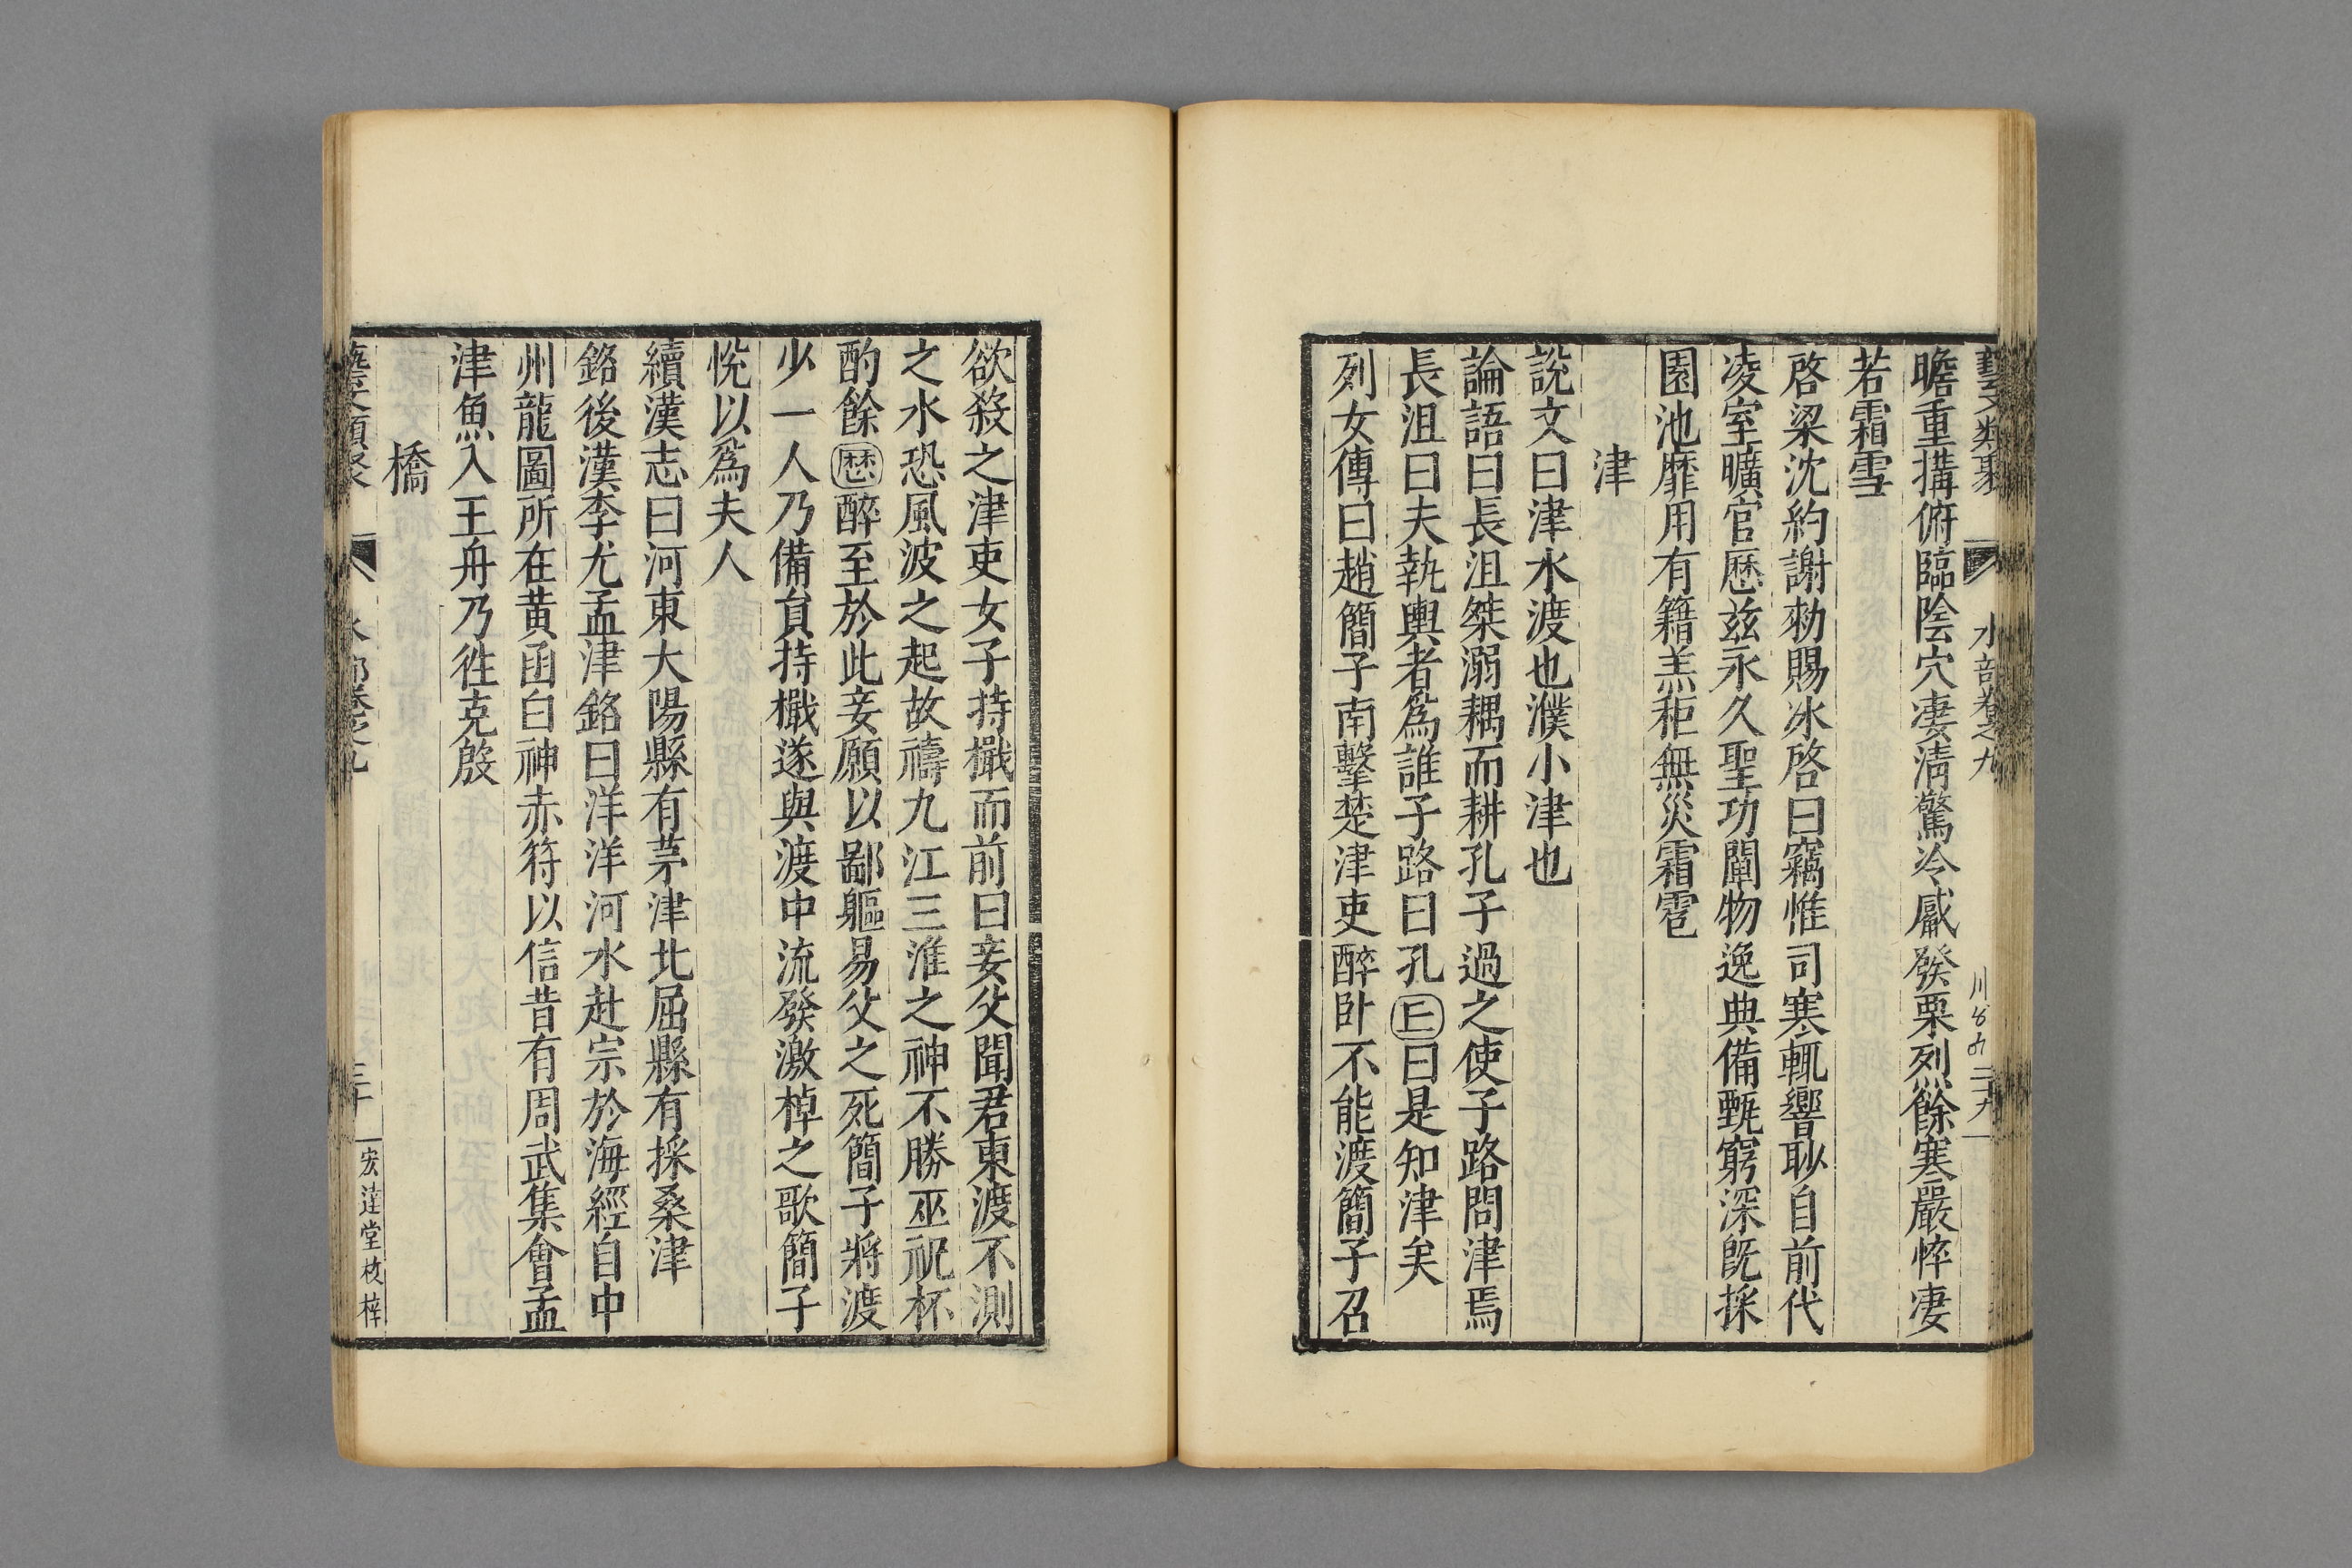 藝文類聚 水部卷之九 二十九
瞻重搆俯臨陰穴凄清驚冷觱發栗烈餘寒嚴悴凄
若霜雪
啓梁沈約謝勑賜冰啓曰竊惟司寒輒響眇自前代
凌室曠官歷玆永久聖功闡物逸典備甄窮深旣採
園池靡用有籍羔秬無災霜雹
津
說文曰津水渡也濮小津也
論語曰長沮桀溺耦而耕孔子過之使子路問津焉
長沮曰夫執輿者爲誰子路曰孔丘曰是知津矣
列女傳曰趙簡子南擊楚津吏醉卧不能渡簡子召
欲殺之津吏女子持檝而前曰妾父聞君東渡不測
之水恐風波之起故禱九江三淮之神不勝巫祝杯
酌餘歷醉至於此妾願以鄙軀易父之死簡子將渡
少一人乃備負持檝遂與渡中流發激棹之歌簡子
悅以爲夫人
續漢志曰河東大陽縣有茅津北屈縣有採桑津
銘後漢李尤孟津銘曰洋洋河水赴宗於海經自中
州龍圖所在黃函白神赤符以信昔有周武集會孟
津魚入王舟乃徃克殷
橋
藝文類聚 水部卷之九 三十 宏達堂校梓